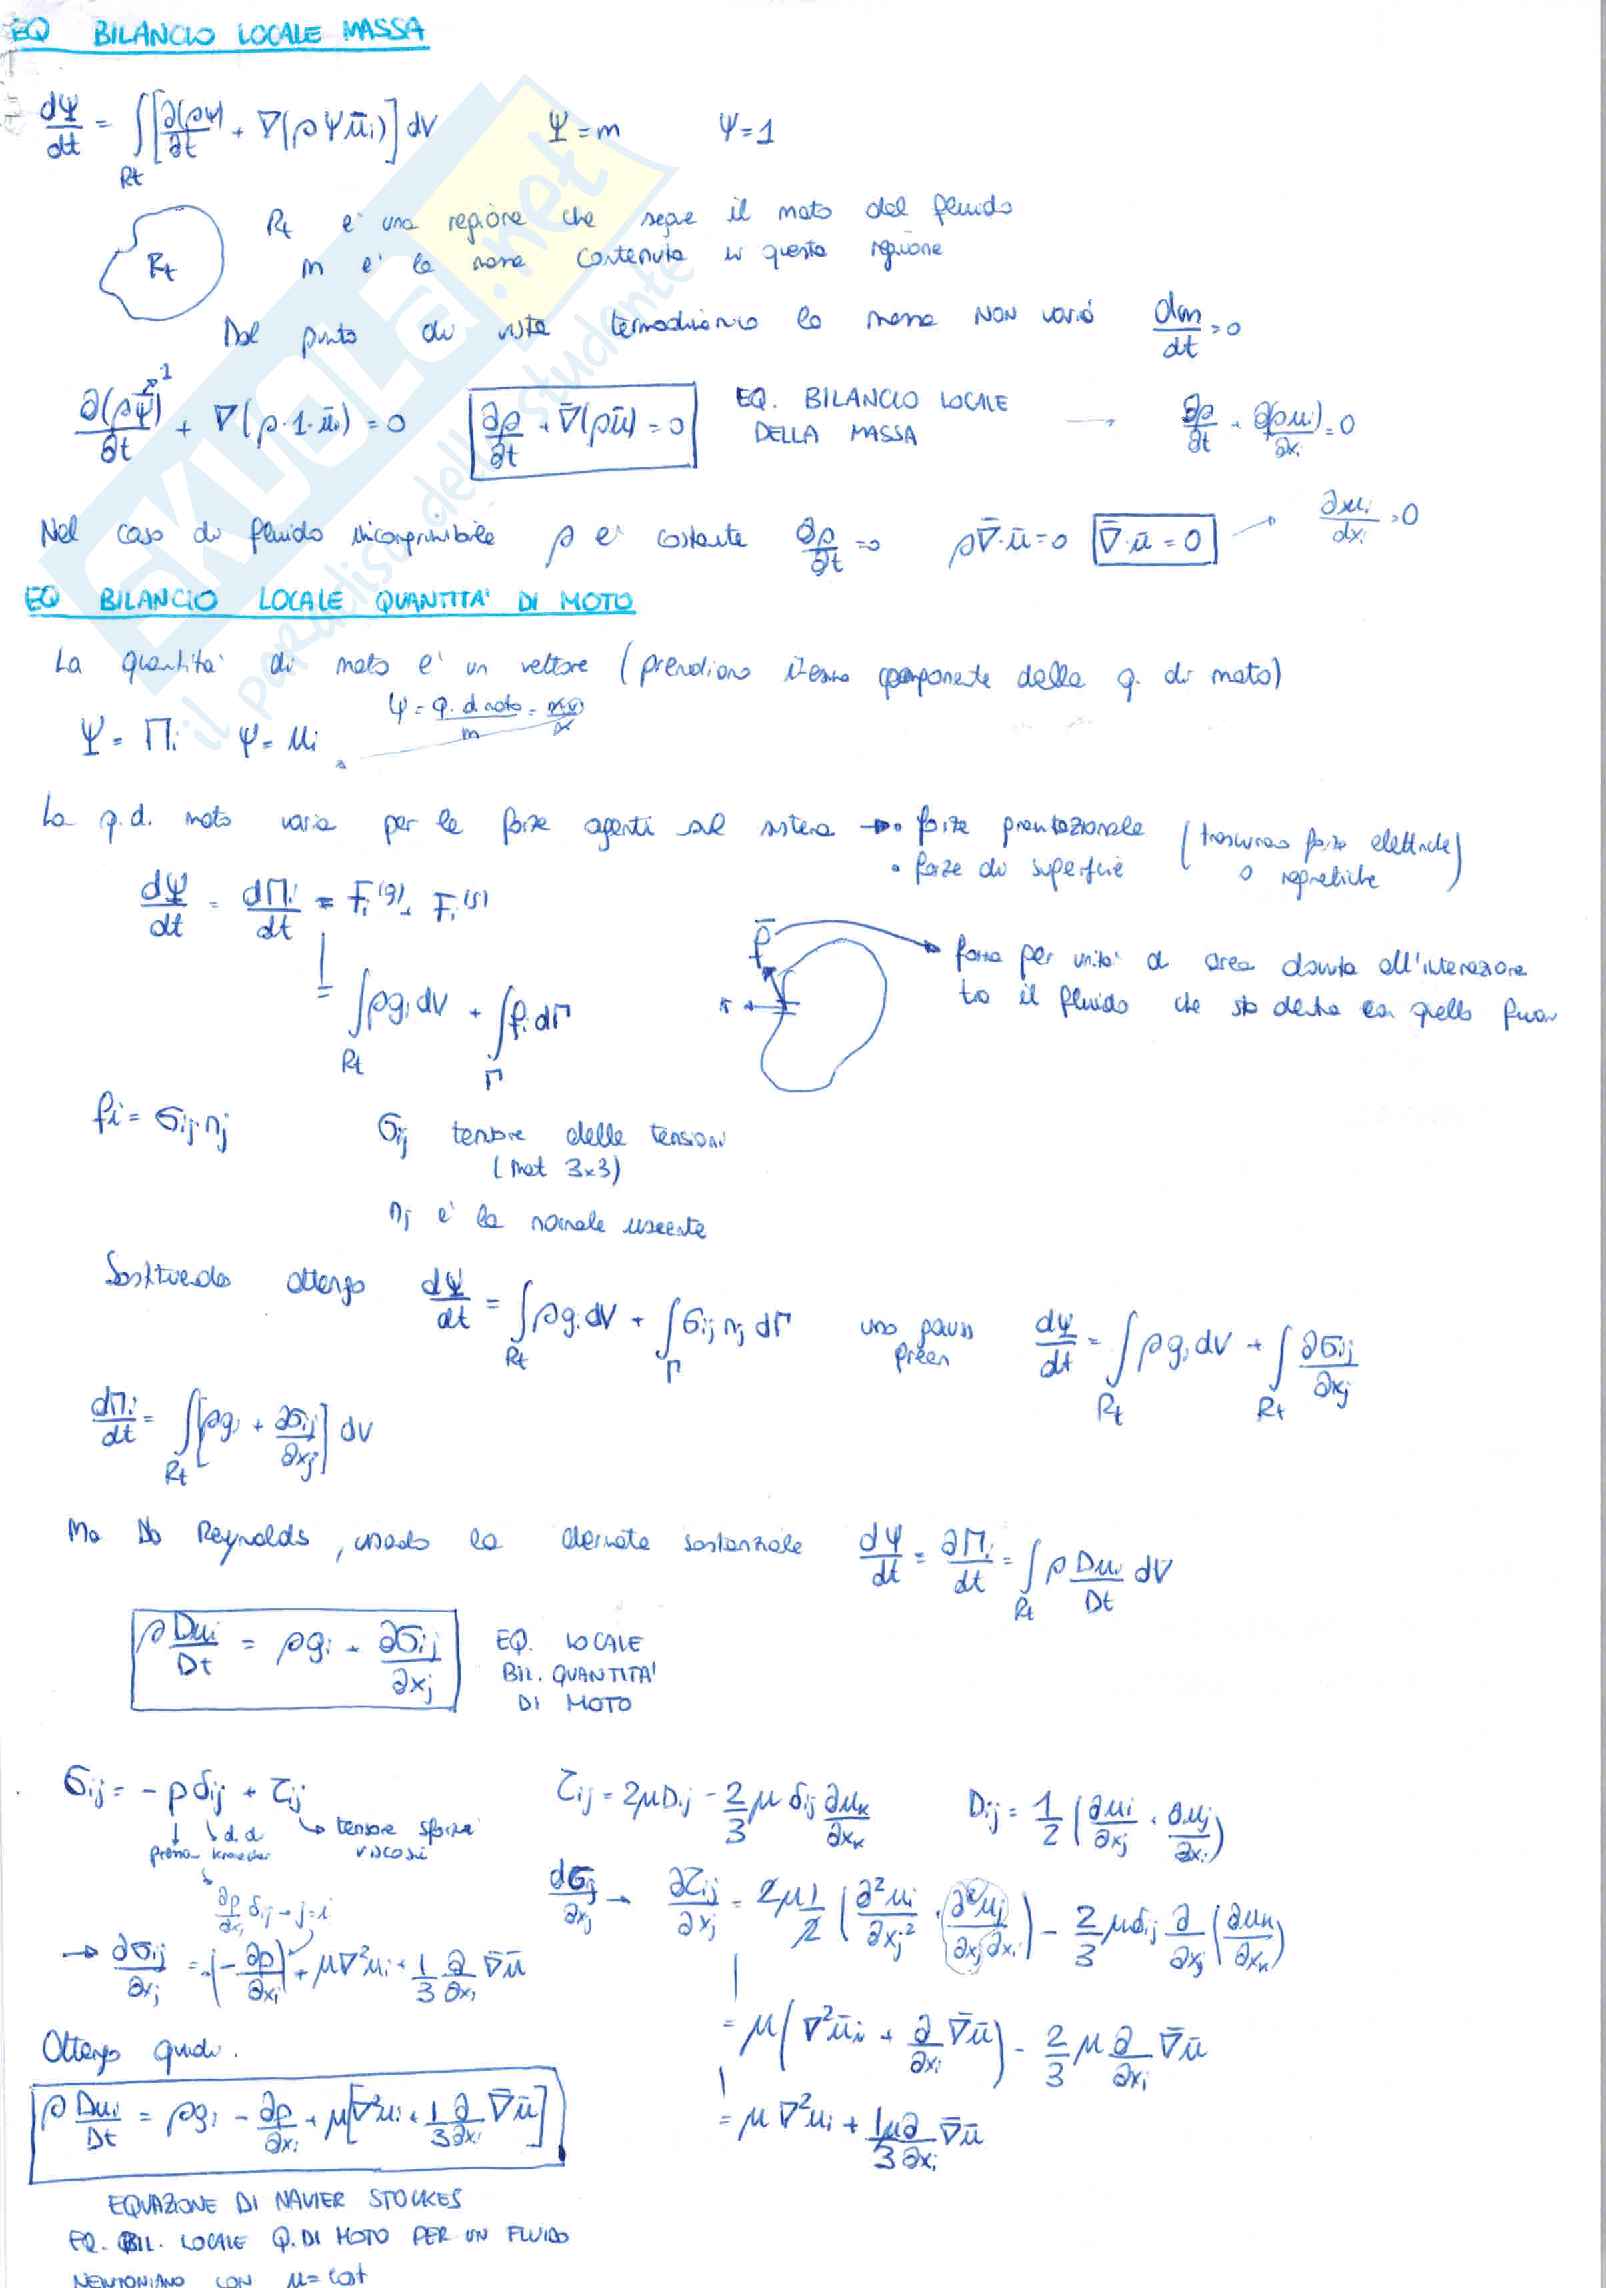 EQ BILANCIO LOCALE MASSA
dΨ/dt = ∫_Rt [∂(ρψ)/∂t + ∇(ρψū_i)] dV    Ψ = m    ψ = 1
Rt e' una regione che segue il moto del fluido
Rt
m e' la massa contenuta in questa regione
Dal punto di vista termodinamico la massa NON varia dm/dt = 0
∂(ρψ)/∂t + ∇(ρ·1·ū_i) = 0    ∂ρ/∂t + ∇̄(ρū) = 0    EQ. BILANCIO LOCALE → ∂ρ/∂t + ∂(ρu_i)/∂x_i = 0
1
DELLA MASSA
Nel caso di fluido incomprimibile ρ e' costante ∂ρ/∂t = 0    ρ∇̄·ū = 0    ∇̄·ū = 0 → ∂u_i/dx_i = 0
EQ BILANCIO LOCALE QUANTITA' DI MOTO
La quantita' di moto e' un vettore (prendiamo i-esima componente della q. di moto)
Ψ = Π_i    ψ = u_i    ψ = q. di moto/m =
La q.d. moto varia per le forze agenti sul sistema → • forze gravitazionale (trascuriamo forze elettriche
• forze di superficie    o magnetiche)
dΨ/dt = dΠ_i/dt = F_i^(g) + F_i^(s)
f̄ → forza per unita' di area dovuta all'interazione
tra il fluido che sta dentro con quello fuori
= ∫_Rt ρg_i dV + ∫_Γ f_i dΓ
f_i = σ_ij n_j    σ_ij tensore delle tensioni
(mat 3x3)
n_j e' la normale uscente
Sostituendo ottengo dΨ/dt = ∫_Rt ρg_i dV + ∫_Γ σ_ij n_j dΓ    uso gauss green    dΨ/dt = ∫_Rt ρg_i dV + ∫_Rt ∂σ_ij/∂x_j
dΠ_i/dt = ∫_Rt [ρg_i + ∂σ_ij/∂x_j] dV
Ma Da Reynolds, usando la derivata sostanziale dΨ/dt = ∂Π_i/dt = ∫_Rt ρ Du_i/Dt dV
ρ Du_i/Dt = ρg_i + ∂σ_ij/∂x_j    EQ. LOCALE
BIL. QUANTITA'
DI MOTO
σ_ij = -pδ_ij + τ_ij    τ_ij = 2μD_ij - 2/3 μ δ_ij ∂u_k/∂x_k    D_ij = 1/2 (∂u_i/∂x_j + ∂u_j/∂x_i)
d. di    → tensore sforzi
viscosi
∂p/∂x_j δ_ij → j=i
dσ_ij/∂x_j → ∂τ_ij/∂x_j = 2μ 1/2 (∂²u_i/∂x_j² + ∂²u_j/∂x_j∂x_i) - 2/3 μδ_ij ∂/∂x_j (∂u_k/∂x_k)
→ ∂σ_ij/∂x_j = (-∂p/∂x_i) + μ∇²u_i + 1/3 ∂/∂x_i ∇̄ū
= μ(∇²ū_i + ∂/∂x_i ∇̄ū) - 2/3 μ ∂/∂x_i ∇̄ū
Ottengo quindi:
ρ Du_i/Dt = ρg_i - ∂p/∂x_i + μ[∇²u_i + 1/3 ∂/∂x_i ∇̄ū]
= μ∇²u_i + 1/3 μ ∂/∂x_i ∇̄ū
EQUAZIONE DI NAVIER STOCKES
EQ. BIL. LOCALE Q. DI MOTO PER UN FLUIDO
NEWTONIANO CON μ = cost
SKUOLA.net
il paradiso dello studente